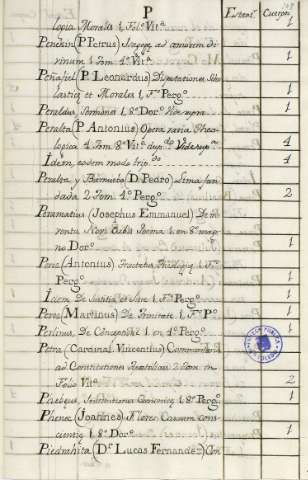 P
Estant.^s Cuerpos
logia Moralis 1, Fol.º Vit.ª 1
Penequin (P. Petrus) ad amorem di-
vinum 1, tom. 4.º Vit.ª 1
Peñafiel (P. Leonardus) Disputationes Scho-
lasticæ et Morales 1, F.º Perg.º 1
Peraldus Sermones 1, 8.º Dor.º 1
Peralta (P. Antonius) Opera varia Theo-
logica 4 Tom. 8.º Vit.ª dup.do 4
Idem, eodem modo trip.do 4
Peralta y Barnuevo (D. Pedro) Lima fun-
dada 2 Tom. 4.º Perg.º 2
Peramatus (Josephus Emmanuel) De in-
venta Novi Orbis 1. en 8.º mag-
no Dor.º 1
Perez (Antonius) Tractatus 1, F.º
Perg.º 1
Idem De Justitia et Jure 1, F.º Perg.º 1
Perez (Martinus) De 1, F.º P.º 1
Perlinus De Conceptione 1. en 4.º Perg.º 1
Petra (Cardinal. Vincentius) Commentaria
ad Constitutiones Apostolicas 2 Tom. en
Folio Vit.ª 2
Institutiones Canonicæ 1, 8.º Perg.º 1
Phena (Joannes) Flores
1, 8.º Dor.º 1
Piedrahita (D.^r Lucas Fernandez)